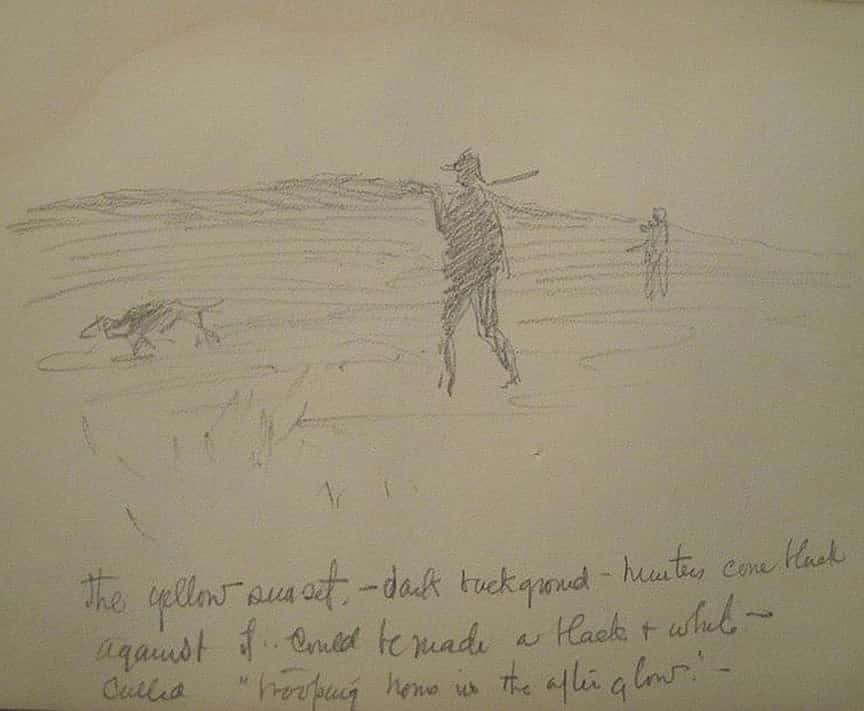 The yellow sunset. - dark background - hunters come black
against it.. Could be made a black + white -
Called "trooping home in the after glow." -